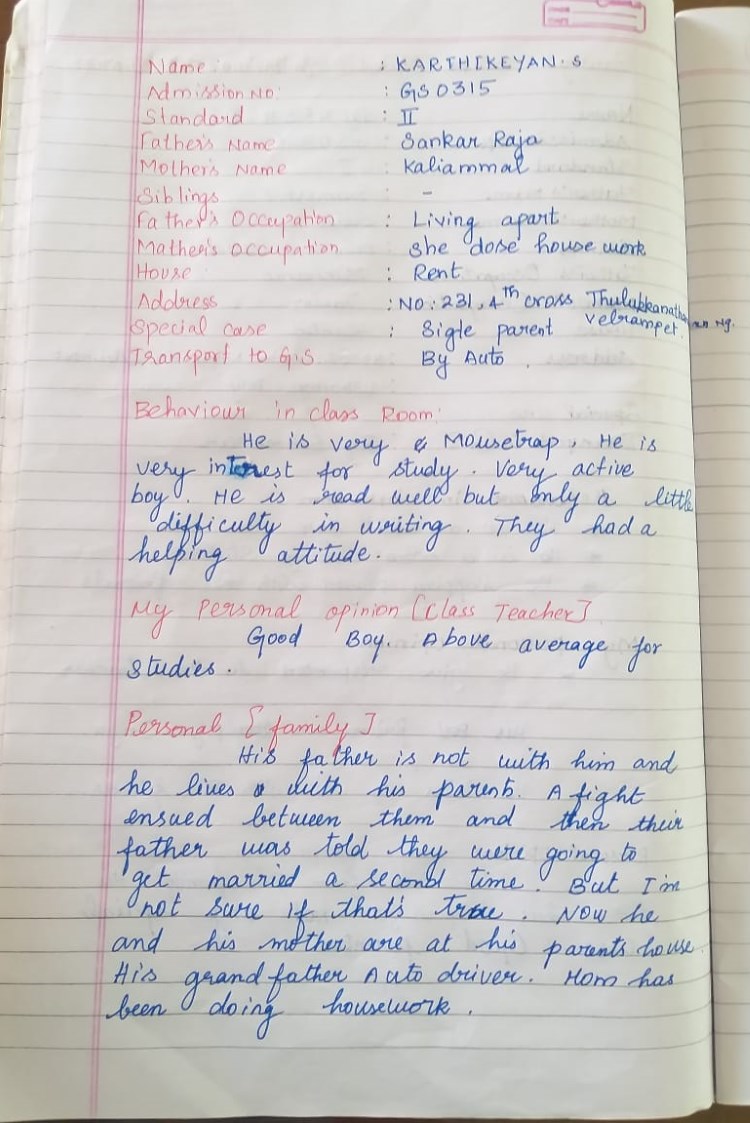 Name : KARTHIKEYAN. S
Admission No: : GS0315
Standard : II
Father's Name Sankar Raja
Mother's Name : Kaliammal
Siblings -
Father's Occupation : Living apart
Mother's occupation she dose house work
House : Rent
Address : NO: 231, 4th cross Thulukkanathamman Ng.
Velrampet.
Special case : Sigle parent
Transport to G.S By Auto.
Behaviour in class Room:
He is very & Mousetrap, He is
very interest for study. Very active
boy. He is read well but only a little
difficulty in writing. They had a
helping attitude.
My Personal opinion [Class Teacher]
Good Boy. Above average for
Studies.
Personal [family]
His father is not with him and
he lives with his parents. A fight
ensued between them and then their
father was told they were going to
get married a second time. But I'm
not sure if that's true. Now he
and his mother are at his parents house.
His grand father Auto driver. Mom has
been doing housework.